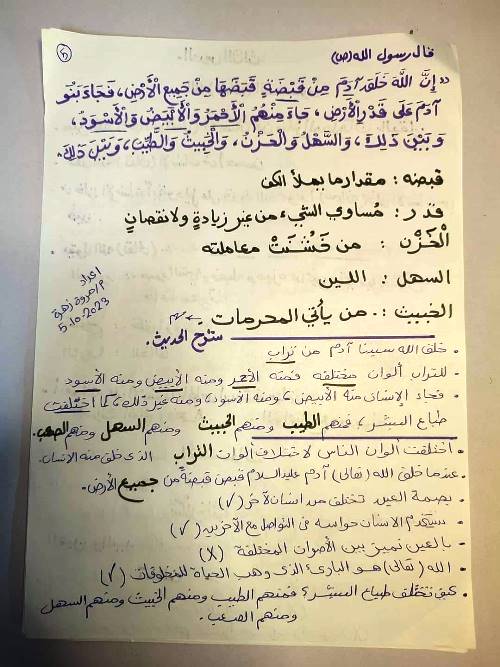 ٥
قال رسول الله (ص)
"إِنَّ اللَّهَ خَلَقَ آدَمَ مِنْ قَبْضَةٍ قَبَضَهَا مِنْ جَمِيعِ الْأَرْضِ، فَجَاءَ بَنُو
آدَمَ عَلَى قَدْرِ الْأَرْضِ، جَاءَ مِنْهُمُ الْأَحْمَرُ وَالْأَبْيَضُ وَالْأَسْوَدُ،
وَبَيْنَ ذَلِكَ، وَالسَّهْلُ وَالْحَزْنُ، وَالْخَبِيثُ وَالطَّيِّبُ، وَبَيْنَ ذَلِكَ.
قبضه : مقدار ما يملأ الكف
قدر : مُساوي الشيء من غير زيادةٍ ولا نقصانٍ
الْحَزْن : من خَشُنَتْ معاملته
السهل : اللين
الخبيث : من يأتي المحرمات
اعداد
م/مروة زهرة
5-10-2023
شرح الحديث.
. خلق الله سيدنا آدم من تراب
. للتراب ألوان مختلفه فمنه الأحمر ومنه الأبيض ومنه الأسود
. فجاء الإنسان منه الأبيض، ومنه الأسود، ومنه غير ذلك، كما اختلفت
طباع البشر، فمنهم الطيب ومنهم الخبيث ومنهم السهل ومنهم الصعب.
. اختلفت ألوان الناس لاختلاف ألوان التراب الذى خلق منه الإنسان.
. عندما خلق الله (تعالى) آدم عليه السلام قبض قبضةً من جميع الأرض.
. بصمة العين تختلف من انسان لآخر (✓)
. يستخدم الانسان حواسه فى التواصل مع الآخرين (✓)
. بالعين نميز بين الأصوات المختلفة (X)
. الله (تعالى) هو البارئ الذى وهب الحياة للمخلوقات (✓)
. كيف تختلف طباع البشر؟ فمنهم الطيب ومنهم الخبيث ومنهم السهل
ومنهم الصعب.